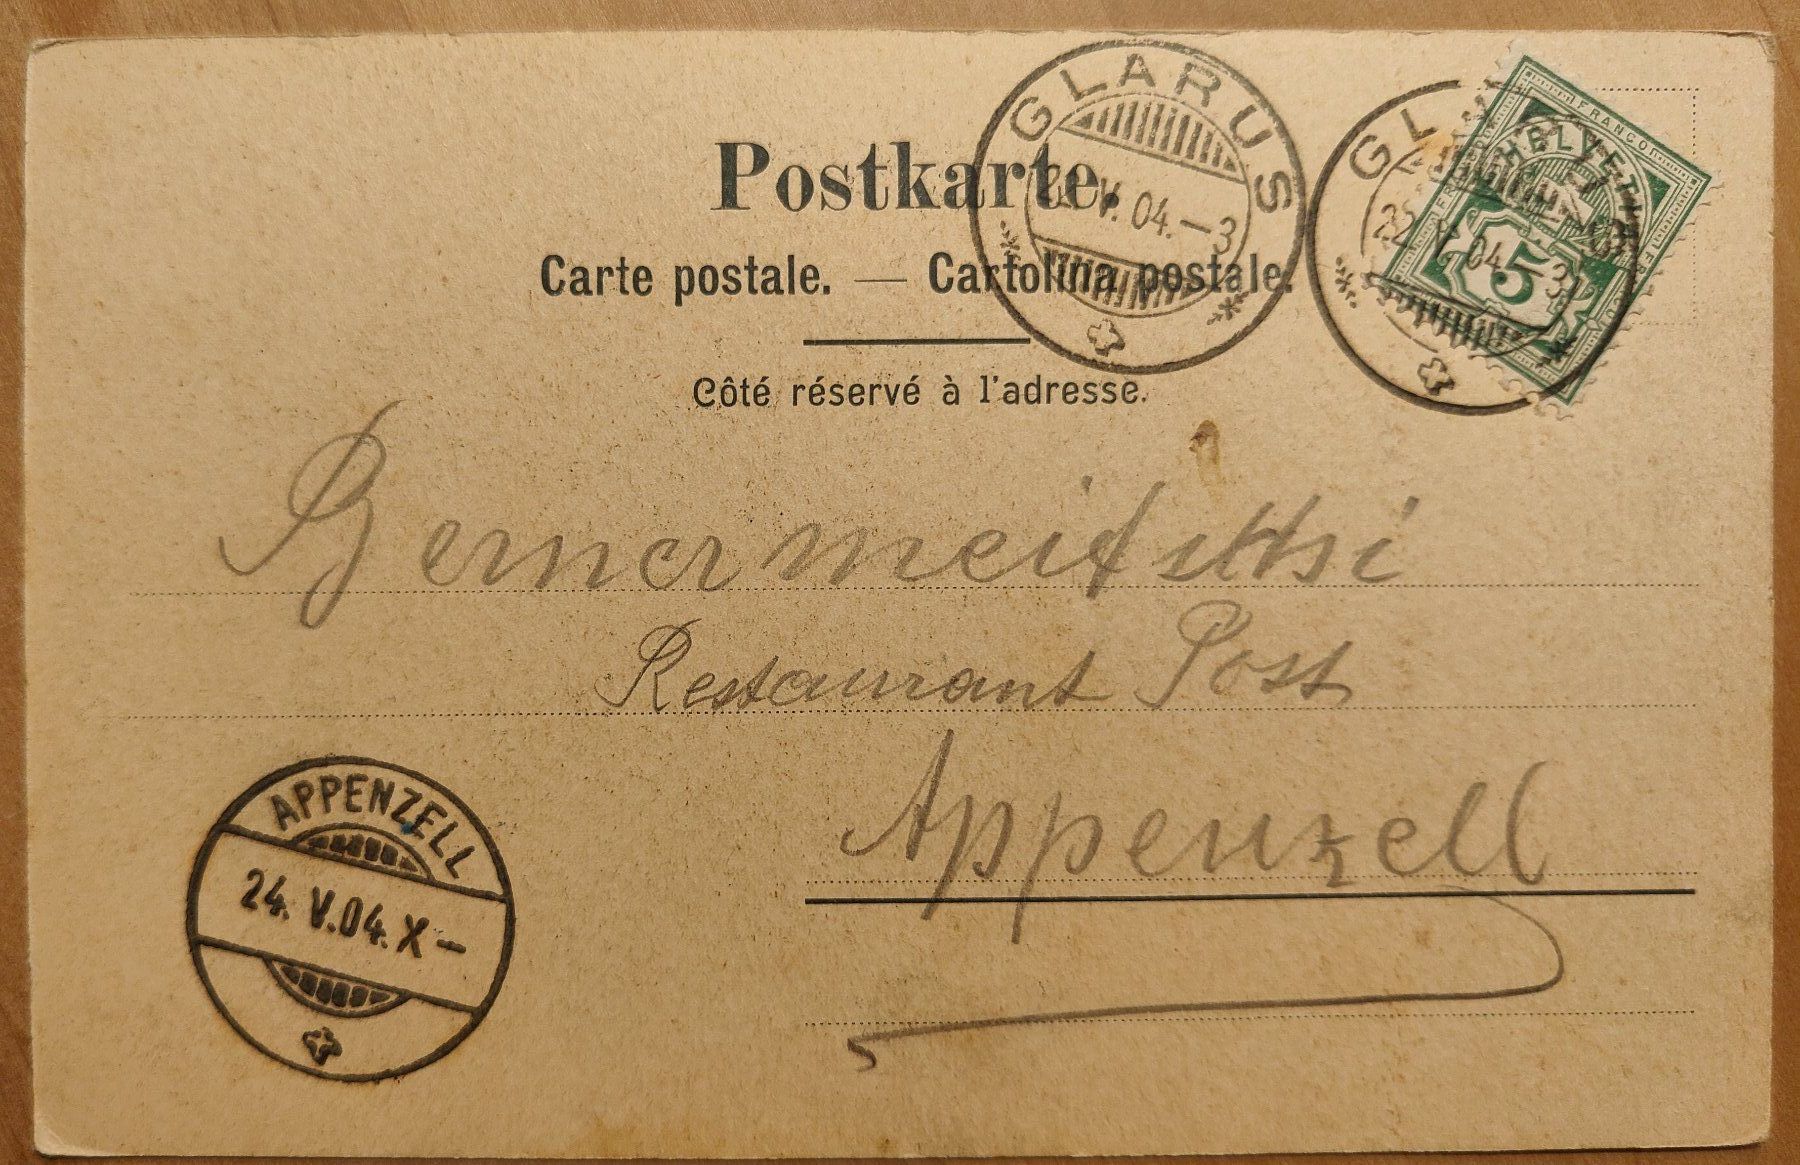 Postkarte.
Carte postale. — Cartolina postale.
Côté réservé à l'adresse.
GLARUS
22. V. 04. – 3
GL
22. V. 04. – 3
FRANCO
HELVETIA
5
Restaurant Post
Appenzell
APPENZELL
24. V. 04. X –